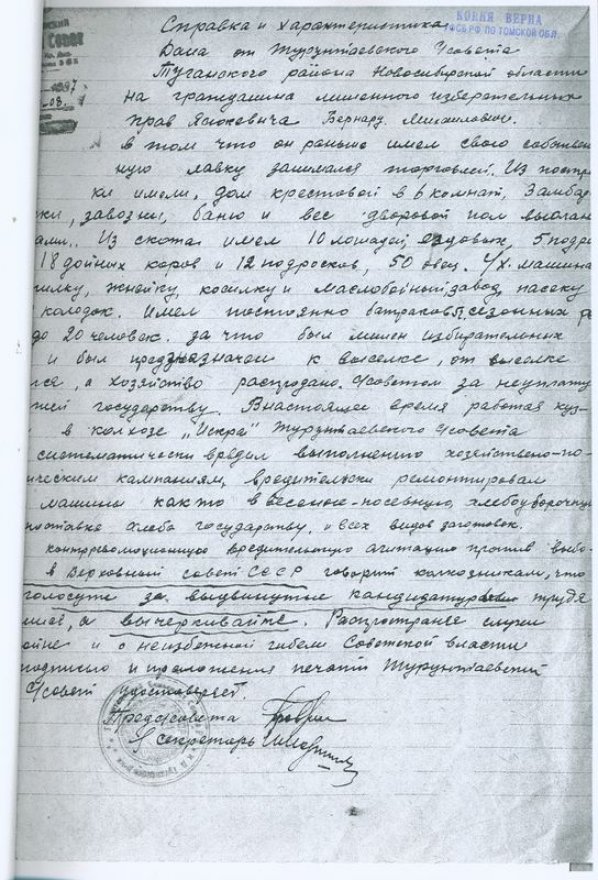 Справка и характеристика
КОПИЯ ВЕРНА
УФСБ РФ ПО ТОМСКОЙ ОБЛ.
Дана от Турунтаевского Усовета
Туганского района Новосибирской области
на гражданина лишенного изберательных
прав Ясюкевича Бернард. Михайлович.
в том что он раньше имел свою собствен
ную лавку занимался торговлей. Из постро
ки имели, дом крестовой в 6 комнат, Замбар
ки, завозни, баню и вес дворовой пом
ами.. Из скота имел 10 лошадей ездовых, 5 подро
18 дойных коров и 12 подросков, 50 овец. с/х. машина
жнейку, косилку и маслобойный завод, пасеку
колодок. Имел постоянно батраков, сезонных
до 20 человек. за что был лишен избирательных
и был предзназначен к выселке, от выселке
лся, а хозяйство распродано Усоветом за неуплату
жей государству. Внастоящее время работая куз-
в колхозе „Искра" Турунтаевского Усовета
систематически вредил выполнению хозяйствено-по-
ическим кампаниям, вредительски ремонтировал
машины как то в весенне-посевную, хлебоуборочную
поставке хлеба государству, и всех видов заготовок.
контрреволюционную вредительную агитацию против выбо-
в Верховный совет СССР говорит колхозникам, что
голосуте за выдвинутые кандидатуры трудя
а вычеркивайте. Распространяе слухи
ойне и о неизбежной гибели Советской власти
подписью и приложения печати Турунтаевский
Усовет удостоверяет.
Предсовета
секретарь